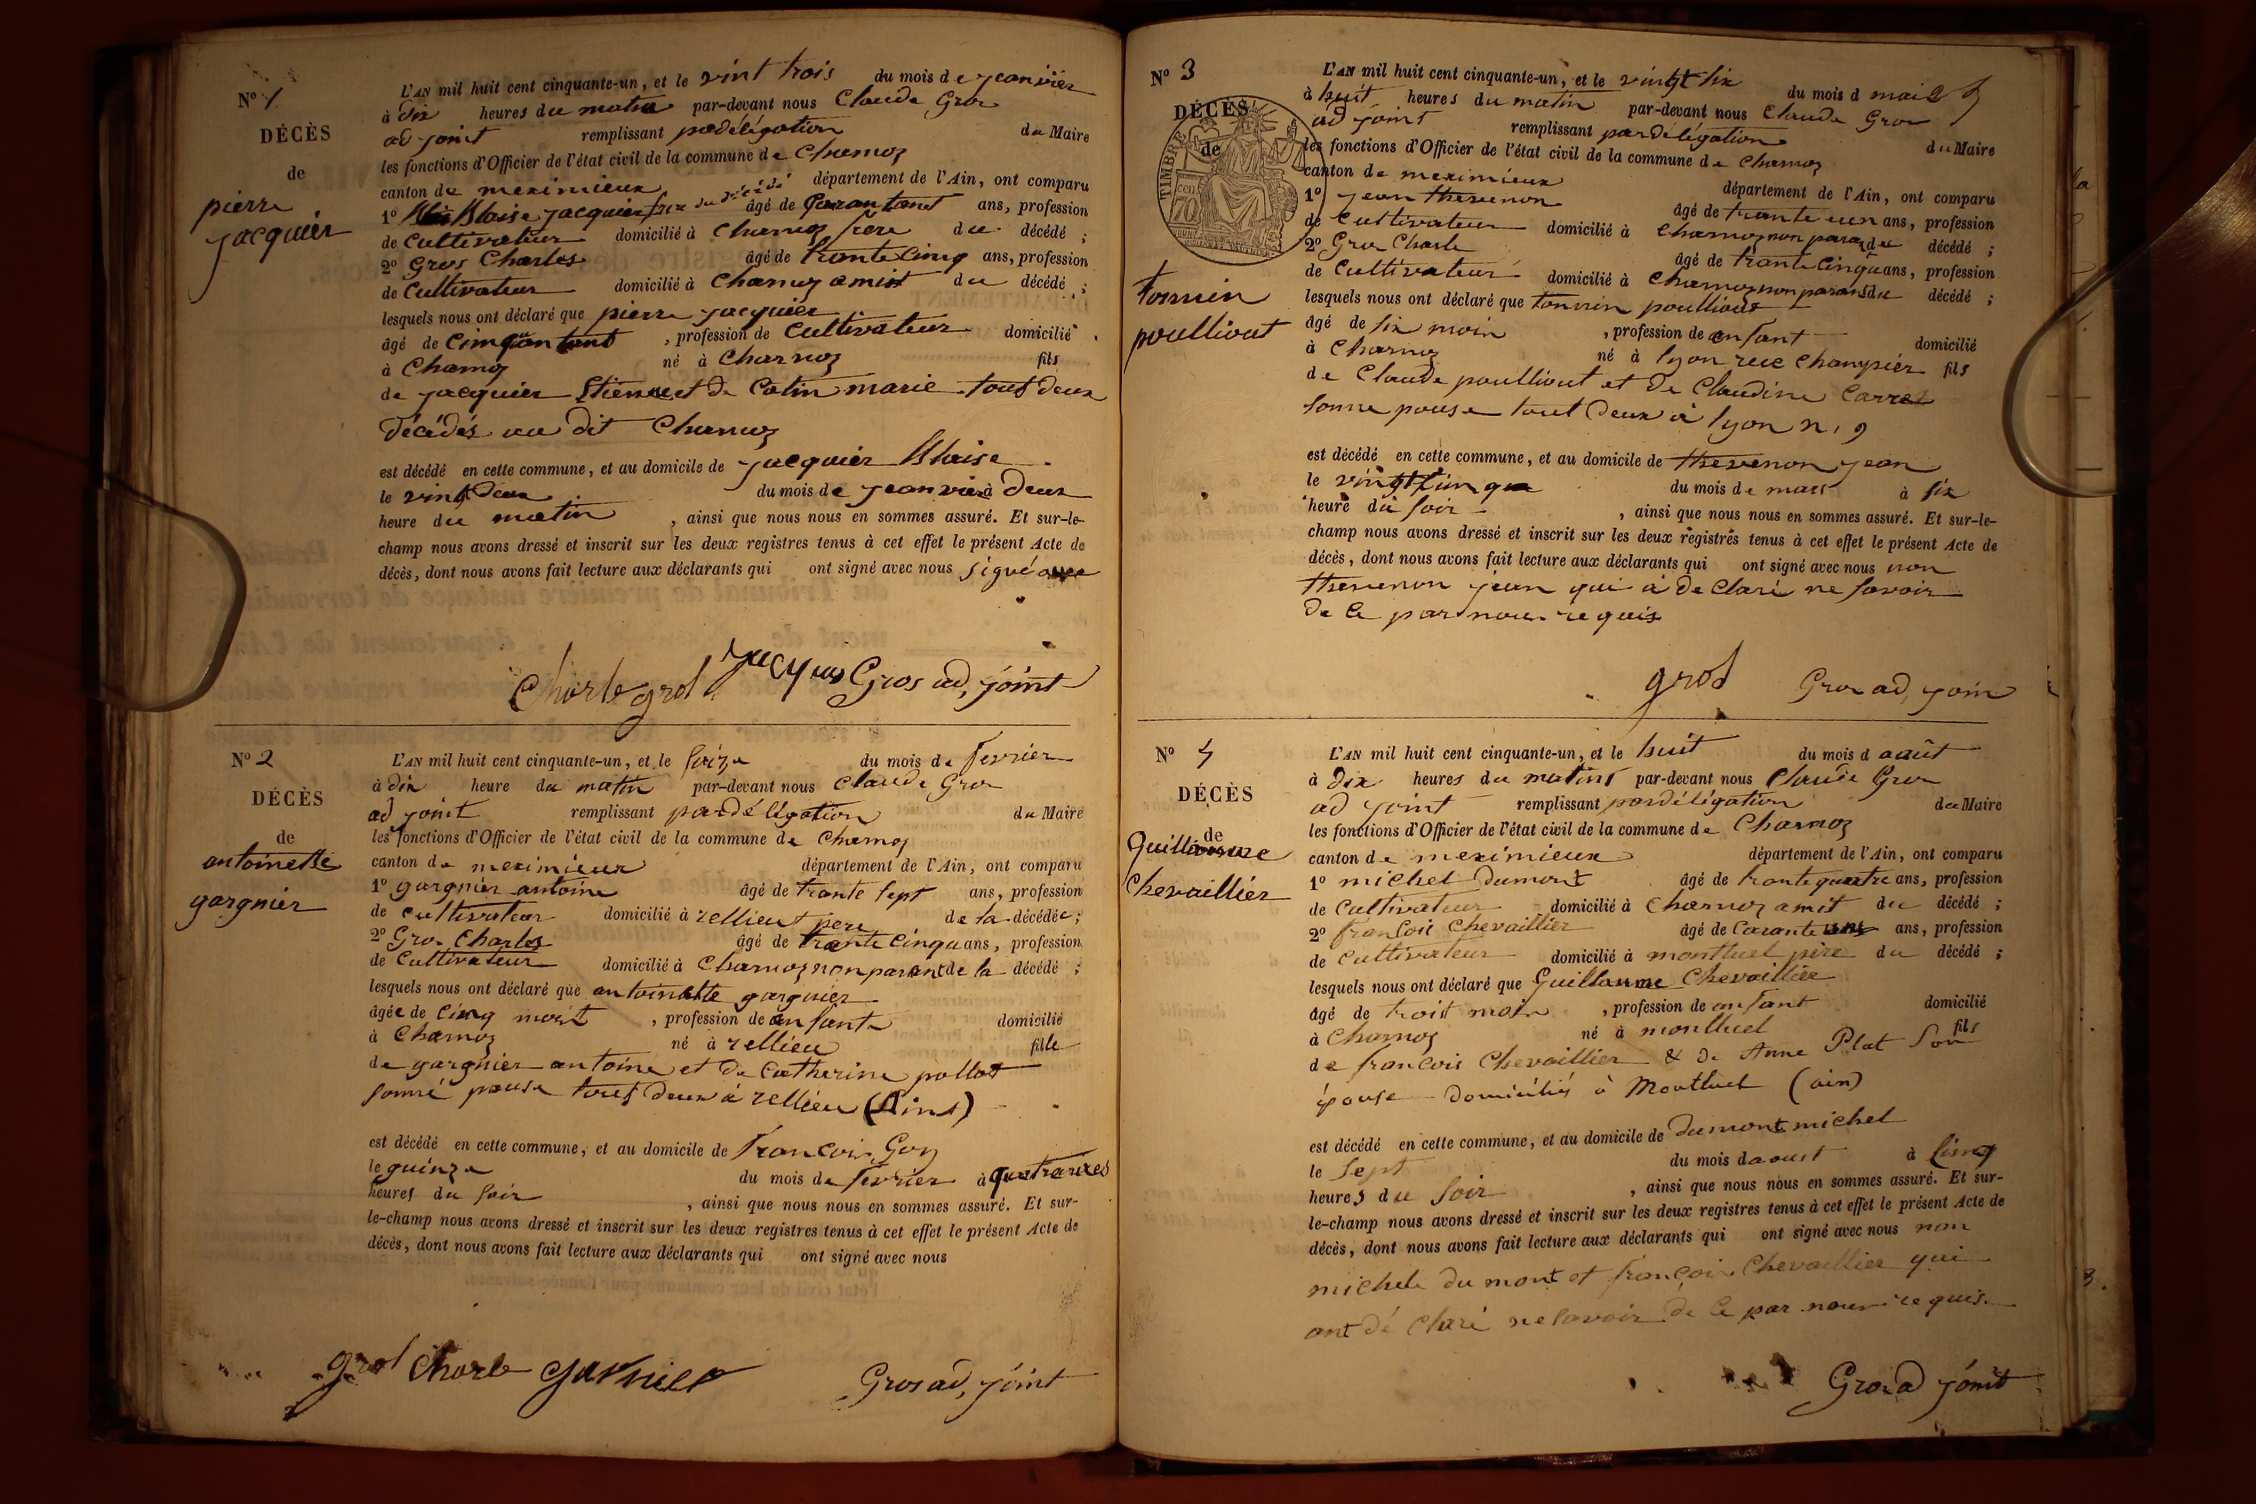 N° 1
DÉCÈS
de
pierre
jacquier
L'AN mil huit cent cinquante-un, et le vint trois du mois de jeanvier
à dix heures du matin par-devant nous Claude Gros
ad joint remplissant par délégation du Maire
les fonctions d'Officier de l'état civil de la commune de Charnoz
canton de meximieux département de l'Ain, ont comparu
1° Blaise jacquier frere du décédé âgé de ans, profession
de Cultivateur domicilié à Charnoz frere du décédé ;
2° Gros Charles âgé de trante cinq ans, profession
de Cultivateur domicilié à Charnoz amist du décédé ;
lesquels nous ont déclaré que pierre jacquier
âgé de , profession de Cultivateur domicilié
à Charnoz né à Charnoz fils
de jacquier Etienne et de Colin marie tout deux
décédés au dit Charnoz
est décédé en cette commune, et au domicile de jacquier Blaise
le vingt deux du mois de jeanvier à deux
heure du matin , ainsi que nous nous en sommes assuré. Et sur-le-
champ nous avons dressé et inscrit sur les deux registres tenus à cet effet le présent Acte de
décès, dont nous avons fait lecture aux déclarants qui ont signé avec nous signé avec
Charle grol Gros ad, joint
N° 2
DÉCÈS
de
antoinette
gargnier
L'AN mil huit cent cinquante-un, et le seize du mois de fevrier
à dix heure du matin par-devant nous Claude Gros
ad joint remplissant par délégation du Maire
les fonctions d'Officier de l'état civil de la commune de Charnoz
canton de meximieux département de l'Ain, ont comparu
1° gargnier antoine âgé de trante sept ans, profession
de cultivateur domicilié à rellieu pere de la décédée ;
2° Gros Charles âgé de trante cinqu ans, profession
de Cultivateur domicilié à Charnoz non parant de la décédé ;
lesquels nous ont déclaré que antoinette gargnier
âgée de cinq moist , profession de anfante domicilié
à Charnoz né à rellieu fille
de gargnier antoine et de Catherine pollot
sonné pouse tout deux à rellieu (Ains)
est décédé en cette commune, et au domicile de francois Goy
le quinze du mois de fevrier à quatraures
heures du soir , ainsi que nous nous en sommes assuré. Et sur-
le-champ nous avons dressé et inscrit sur les deux registres tenus à cet effet le présent Acte de
décès, dont nous avons fait lecture aux déclarants qui ont signé avec nous
grol Charle garnier Gros ad, joint
N° 3
DÉCÈS
de
TIMBRE
tonnin
poulliout
L'AN mil huit cent cinquante-un, et le vingt six du mois d mais
à huit heures du matin par-devant nous Claude Gros
ad joint remplissant par délégation du Maire
les fonctions d'Officier de l'état civil de la commune de Charnoz
canton de meximieux département de l'Ain, ont comparu
1° jean thevenon âgé de trante eun ans, profession
de Cultivateur domicilié à Charnoz non parans du décédé ;
2° Gros Charle âgé de trante cinqu ans, profession
de Cultivateur domicilié à Charnoz non parans du décédé ;
lesquels nous ont déclaré que tonnin poulliout
âgé de six mois , profession de anfant domicilié
à Charnoz né à lyon rue Champier fils
de Claude poulliout et de Claudine Carret
sonne pouse tout deux à lyon n. 9
est décédé en cette commune, et au domicile de thevenon jean
le vingt cinque du mois de mars à six
heure du soir , ainsi que nous nous en sommes assuré. Et sur-le-
champ nous avons dressé et inscrit sur les deux registres tenus à cet effet le présent Acte de
décès, dont nous avons fait lecture aux déclarants qui ont signé avec nous non
thevenon jean qui à de claré ne savoir
de ce par nous requis
grol Gros ad, join
N° 4
DÉCÈS
de
Guillaume
Chevaillier
L'AN mil huit cent cinquante-un, et le huit du mois d août
à dix heures du matins par-devant nous Claude Gros
ad joint remplissant par délégation du Maire
les fonctions d'Officier de l'état civil de la commune de Charnoz
canton de meximieux département de l'Ain, ont comparu
1° michel Dumont âgé de trante quatre ans, profession
de Cultivateur domicilié à Charnoz amit du décédé ;
2° francois Chevaillier âgé de Carante ans, profession
de Cultivateur domicilié à montluel père du décédé ;
lesquels nous ont déclaré que Guillaume Chevaillier
âgé de troist mois , profession de anfant domicilié
à Charnoz né à montluel fils
de francois Chevaillier & de Anne Plat Son
épouse domiciliés à Montluel (ain)
est décédé en cette commune, et au domicile de dumont michel
le sept du mois daoust à cinq
heures du soir , ainsi que nous nous en sommes assuré. Et sur-
le-champ nous avons dressé et inscrit sur les deux registres tenus à cet effet le présent Acte de
décès, dont nous avons fait lecture aux déclarants qui ont signé avec nous non
michele du mont et françois Chevaillier qui
ont dé claré ne savoir de ce par nous requis
Gros ad joint